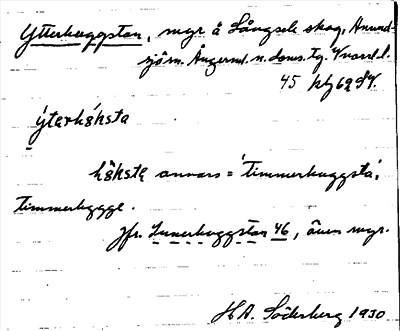 Ytterhuggstan, myr å Långsele skog, Anund-
sjö sn. Ångerml. n. doms. Tg. Kvarul.
45
ýtərhö́ksta
höksta annars = 'timmerhuggsta',
timmerhygge.
Jfr. Innerhuggstan 46, även myr.
H.A. Söderberg 1930